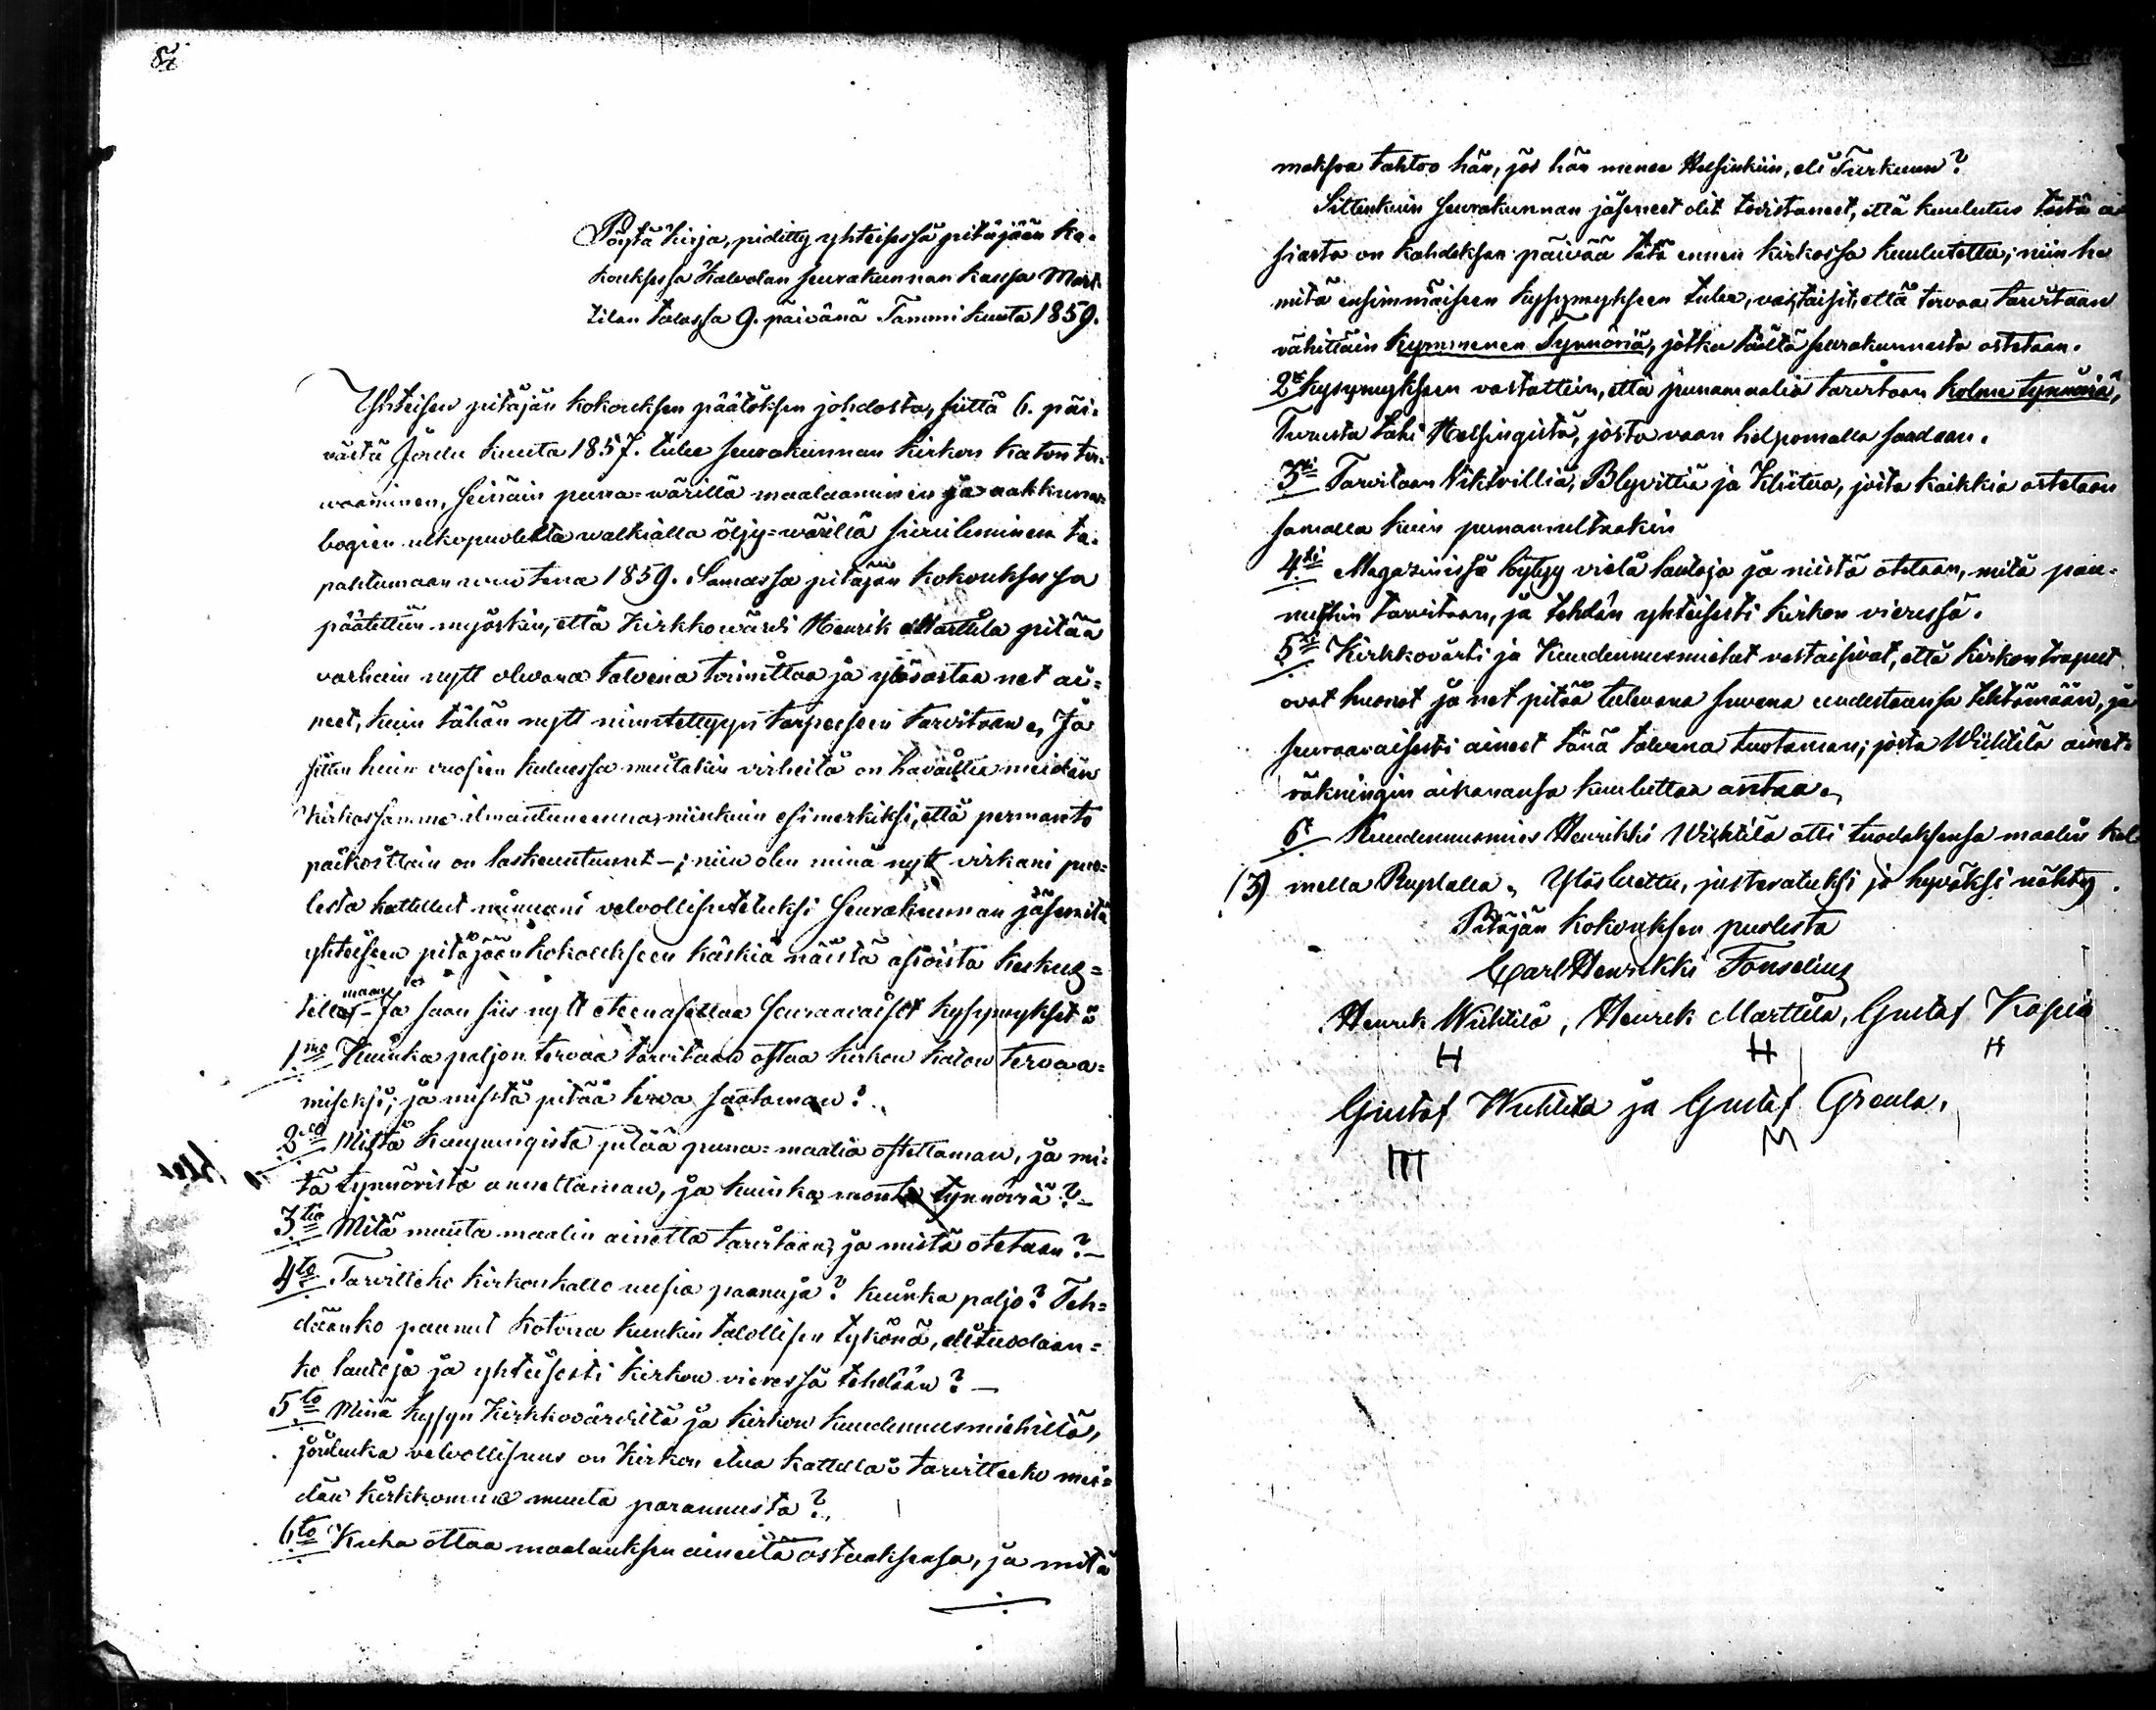 Pöytä kirja, piditty yhteisessä pitäjään ko-
kouksessa Kalvolan seurakunnan kansa Mart-
tilan talossa 9. päivänä Tammi kuuta 1859.
Yhteisen pitäjän kokouksen päätöksen johdosta, siittä 6. päi-
västä Joulu kuuta 1857. tulee seurakunnan kirkon katon ter-
vaaminen, seinäin puna-wärillä maalaaminen ja aakkunan
bogien ulkopuolelta walkialla öljy-wärillä siveleminen ta-
pahtumaan wuotena 1859. Samassa pitäjän kokouksessa
päätettiin myöskin, että Kirkkowärdi Henrik Marttila pitää
varhain nytt olevana talvena toimittaa ja ylösostaa net ai-
neet, kuin tähän nytt nimitettyyn tarpeeseen tarvitaan. Ja
sitten kuin vuosien kuluessa muitakin virheitä on havaittu meidän
kirkossamme ilmantuneenna, niinkuin esimerkiksi, että permanto
paikoittain on laskeuntunut -; niin olen minä nytt virkani puo-
lesta kattellut minuani velvollisutetuksi seurakunnan jäsenitä
yhteiseen pitäjään kokoukseen käskiä näistä asioista keskus-
tellamaan - Ja saan siis nytt eteenasettaa seuraavaiset kysymykset:
1mo Kuinka paljon tervaa tarvitaan ostaa kirkon katon tervaa-
miseksi; ja mistä pitää terva saataman?
2do Mistä kaupungista pitää puna-maalia ostettaman, ja mi-
tä tynnöristä annettaman, ja kuinka monta tynnöriä? -
3tio Mitä muuta maalin ainetta tarvitaan, ja mistä otetaan? -
4to Tarvitteeko kirkonkatto uusia paanuja? kuinka paljo? Teh-
däänko paanut kotona kunkin talollisen tykönä, eli tuodaan-
ko lautoja ja yhteisesti kirkon vieressä tehdään? -
5to Minä kysyn Kirkkovärdiltä ja kirkon kuudennusmiehiltä,
joiluka velvollisuus on kirkon etua kattella: tarvitteeko mei-
dän kirkkomme muuta parannusta?
6to Kuka ottaa maalauksen aineita ostaaksensa, ja mitä
maksoa tahtoo hän, jos hän menee Helsinkiin, eli Turkuun?
Sittenkuin seurakunnan jäseneet olit toistaneet, että kuulutus tästä a-
siasta on kahdeksan päivää tätä ennen kirkossa kuulutettu; niin he
mitä ensimmäiseen kysymykseen tulee, vastaisit, että tervaa tarvitaan
vähittäin kymmenen Tynnöriä, jotka täältä seurakunnasta ostetaan.
2x kysymykseen vastattiin, että punamaalia tarvitaan kolme tynnöriä,
Turusta tahi Helsingistä, josta vaan helpomalla saadaan.
3xi Tarvitaan Viktrilliä, Blyvittiä ja Kliitua, joita kaikkia ostetaan
samalla kuin punamultaakin
4xi Magaziinissä löytyy vielä lautoja ja niistä otetaan, mitä paa-
nuihin tarvitaan, ja tehdän yhteisesti kirkon vieressä.
5xi Kirkkovärti ja Kuudennusmiehet vastaisivat, että kirkon traput
ovat huonot ja net pitää tulevana suvena uudestaansa tehtämään, ja
seuraavaisesti aineet tänä talvena tuotaman; josta Wichtilä ainet-
räkningin aikanansa kuuluttaa antaa.
6x Kuudennusmies Henrikki Wichtilä otti tuodaksensa maalin kol-
(3) mella Ruplalla. Ylösluettu, justeratuksi ja hyväksi nähty.
Pitäjän kokouksen puolesta
Carl Henrikki Fonselius
Henrik Wichtilä, Henrik Marttila, Gustaf Kapia
Gustaf Wichtilä ja Gustaf Greula.